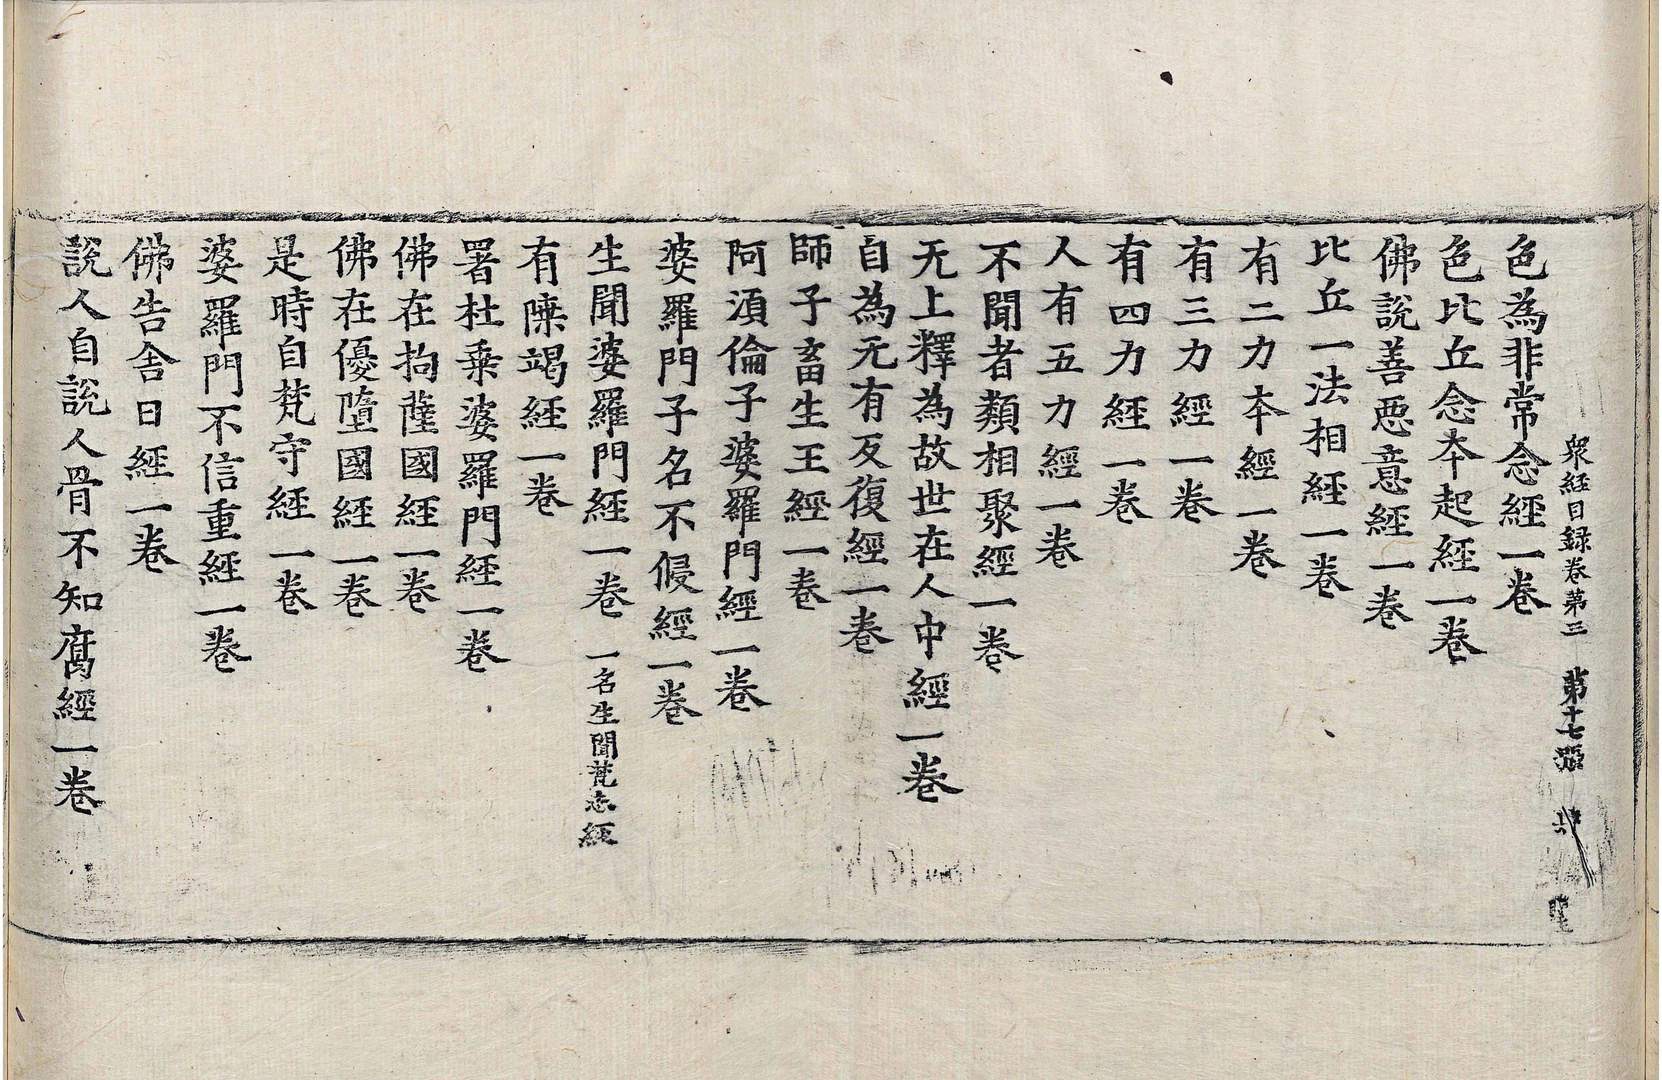 衆經目録卷第三 第十七張
色為非常念經一卷
色比丘念夲起經一卷
佛說善悪意經一卷
比丘一法相經一卷
有二力夲經一卷
有三力經一卷
有四力經一卷
人有五力經一卷
不聞者類相聚經一卷
无上釋為故世在人中經一卷
自為无有反復經一卷
師子畜生王經一卷
阿湏倫子婆羅門經一卷
婆羅門子名不侵經一卷
生聞婆羅門經一卷 一名生聞梵志經
有𨻶竭經一卷
署杜乗婆羅門經一卷
佛在拘薩國經一卷
佛在優墮國經一卷
是時自梵守經一卷
婆羅門不信重經一卷
佛告舎日經一卷
說人自說人骨不知腐經一卷